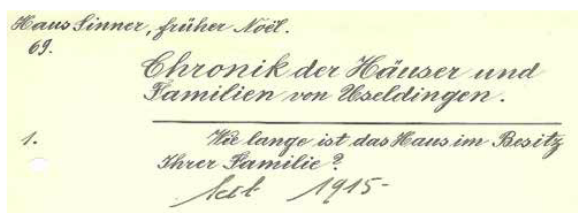 Haus Sinner, früher Noël.
69.
Chronik der Häuser und
Familien von Useldingen.
1. Wie lange ist das Haus im Besitz
Ihrer Familie?
Seit 1915-